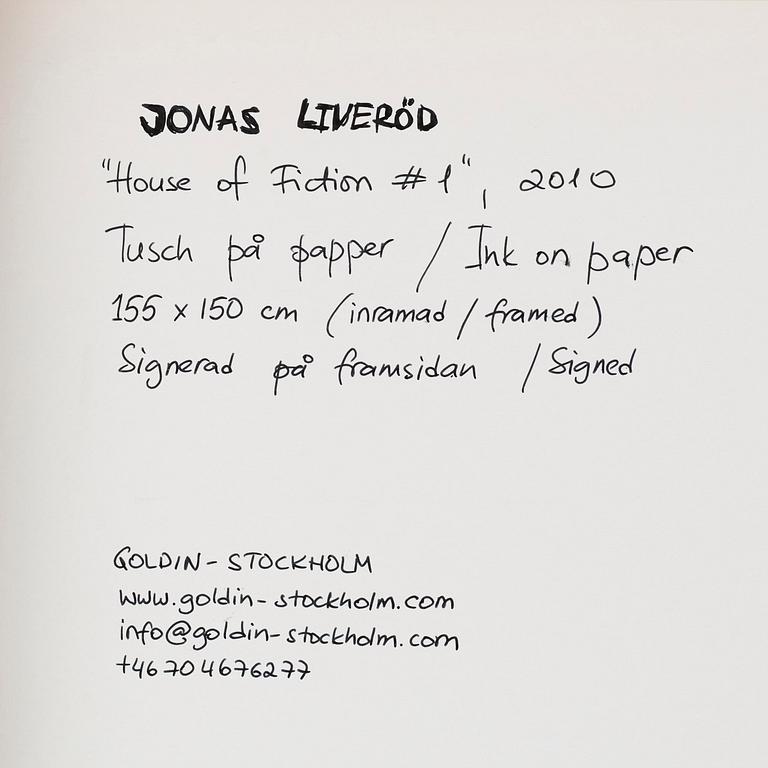 JONAS LIVERÖD
"House of Fiction #1", 2010
Tusch på papper / Ink on paper
155 x 150 cm (inramad / framed)
Signerad på framsidan / Signed
GOLDIN - STOCKHOLM
www.goldin-stockholm.com
info@goldin-stockholm.com
+46 70 4676277